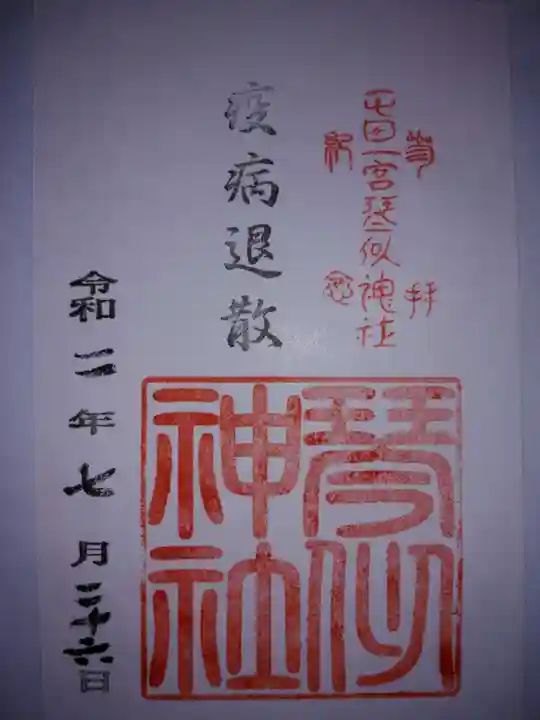 参拝
正一宮琴似神社
紀念
疫病退散
琴似
神社
令和二年七月二十六日